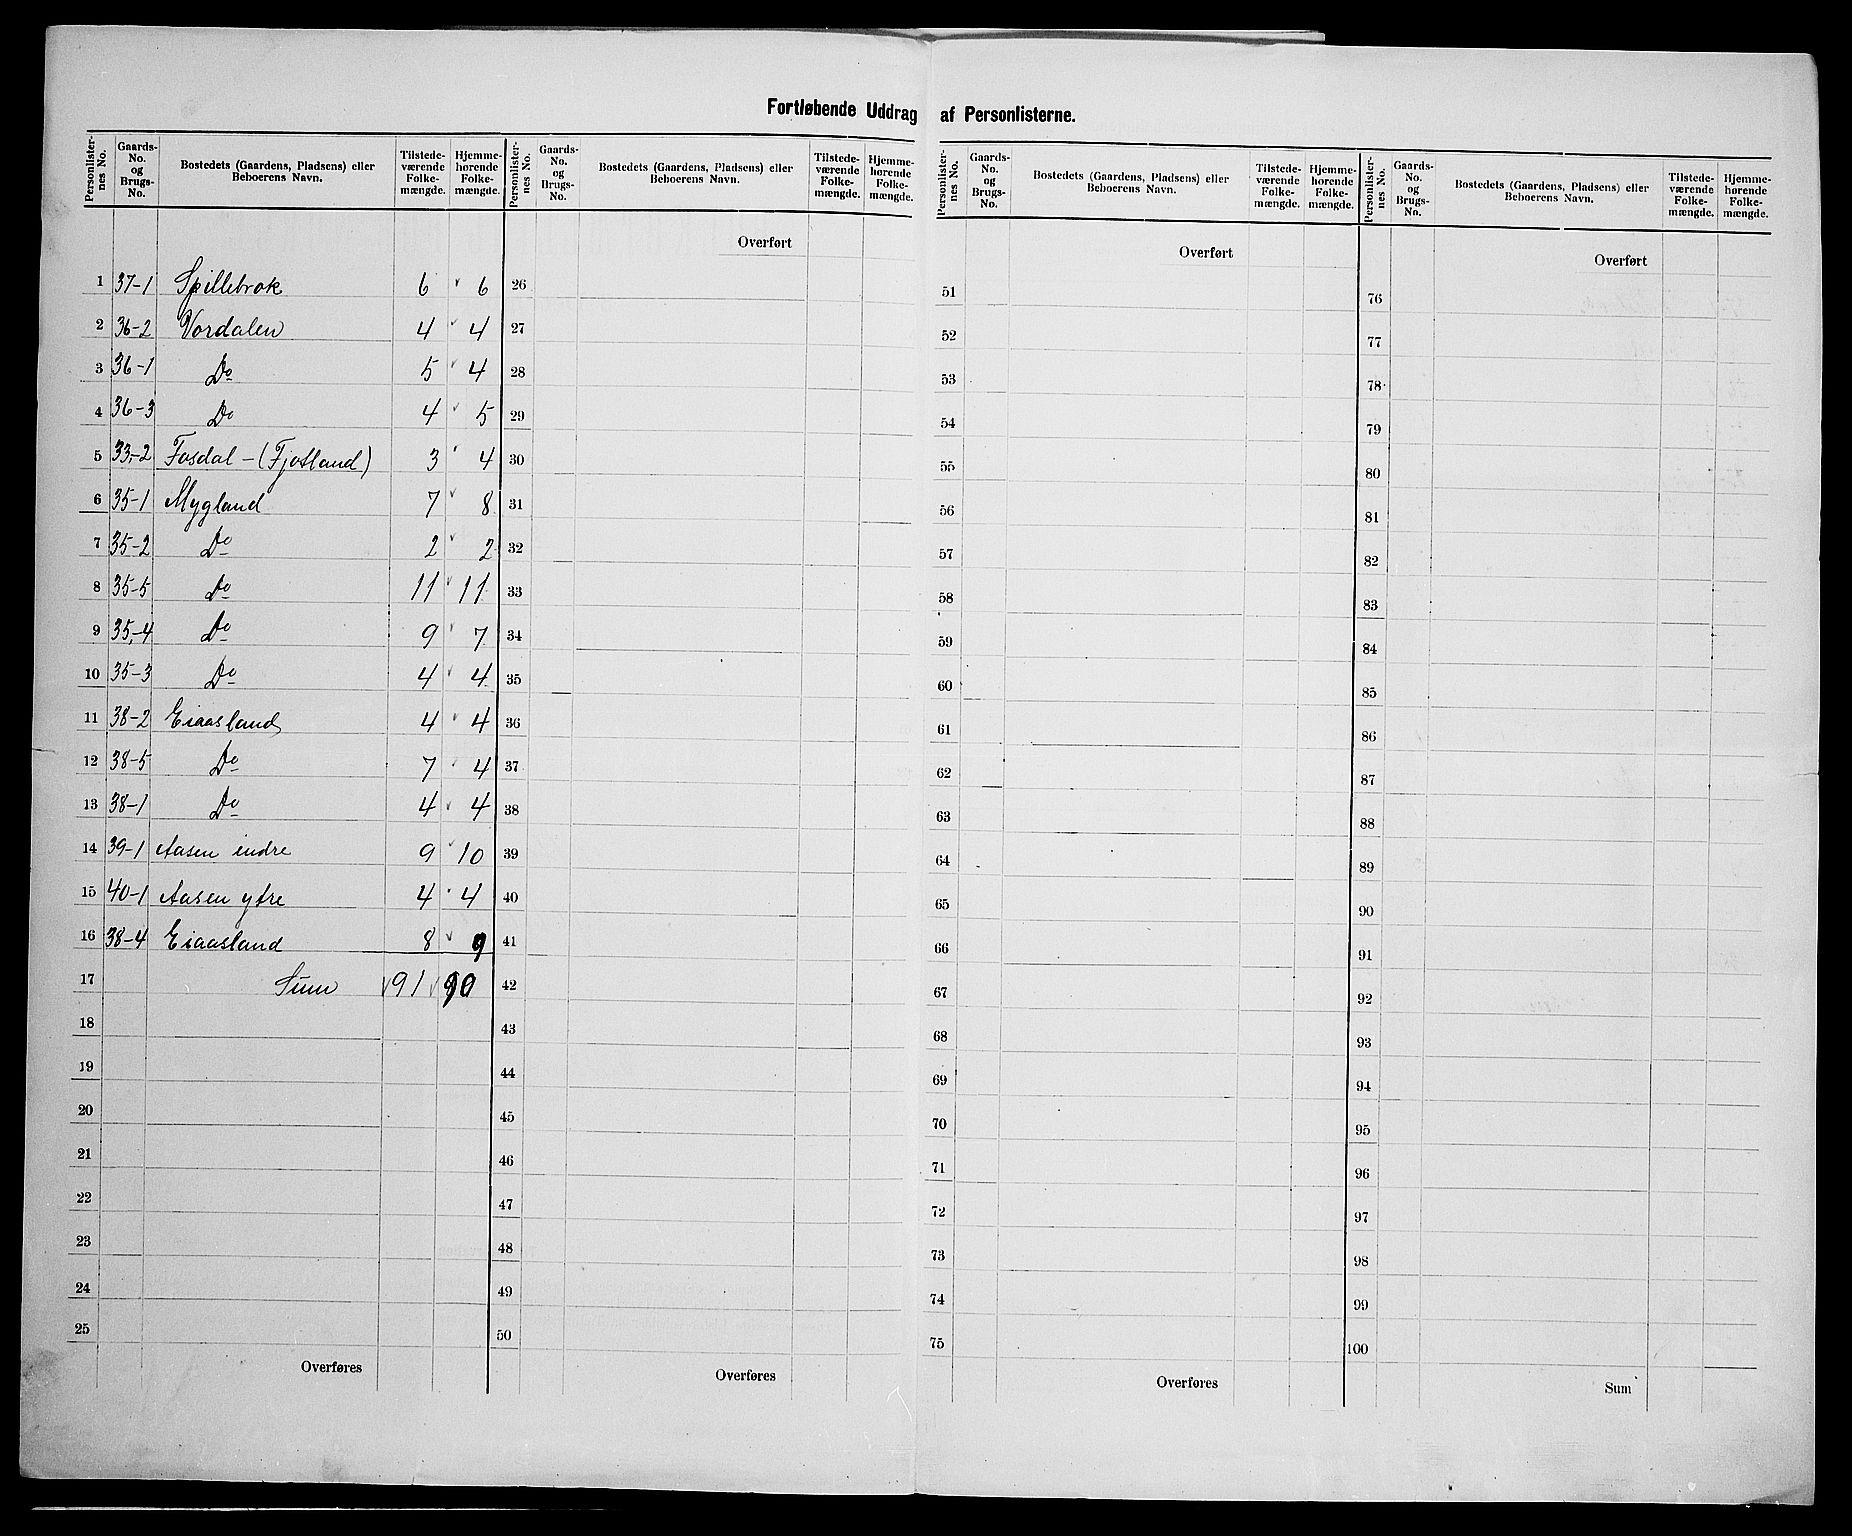 Fortløbende Uddrag af Personlisterne.
Personlister-nes No. | Gaards-No. og Brugs-No. | Bostedets (Gaardens, Pladsens) eller Beboerens Navn. | Tilstede-værende Folke-mængde. | Hjemme-hørende Folke-mængde.
1 37-1 Spillebrok 6 6
2 36-2 Vordalen 4 4
3 36-1 Do 5 4
4 36-3 Do 4 5
5 33,-2 Fosdal - (Fjotland) 3 4
6 35-1 Mygland 7 8
7 35-2 Do 2 2
8 35-5 Do 11 11
9 35,-4 Do 9 7
10 35-3 Do 4 4
11 38-2 Eiaasland 4 4
12 38-5 Do 7 4
13 38-1 Do 4 4
14 39-1 Aasen indre 9 10
15 40-1 Aasen ytre 4 4
16 38-4 Eiaasland 8 9
17 Sum 91 90
18
19
20
21
22
23
24
25
Overføres
Personlister-nes No. | Gaards-No. og Brugs-No. | Bostedets (Gaardens, Pladsens) eller Beboerens Navn. | Tilstede-værende Folke-mængde. | Hjemme-hørende Folke-mængde.
Overført
26
27
28
29
30
31
32
33
34
35
36
37
38
39
40
41
42
43
44
45
46
47
48
49
50
Overføres
Personlister-nes No. | Gaards-No. og Brugs-No. | Bostedets (Gaardens, Pladsens) eller Beboerens Navn. | Tilstede-værende Folke-mængde. | Hjemme-hørende Folke-mængde.
Overført
51
52
53
54
55
56
57
58
59
60
61
62
63
64
65
66
67
68
69
70
71
72
73
74
75
Overføres
Personlister-nes No. | Gaards-No. og Brugs-No. | Bostedets (Gaardens, Pladsens) eller Beboerens Navn. | Tilstede-værende Folke-mængde. | Hjemme-hørende Folke-mængde.
Overført
76
77
78
79
80
81
82
83
84
85
86
87
88
89
90
91
92
93
94
95
96
97
98
99
100
Sum